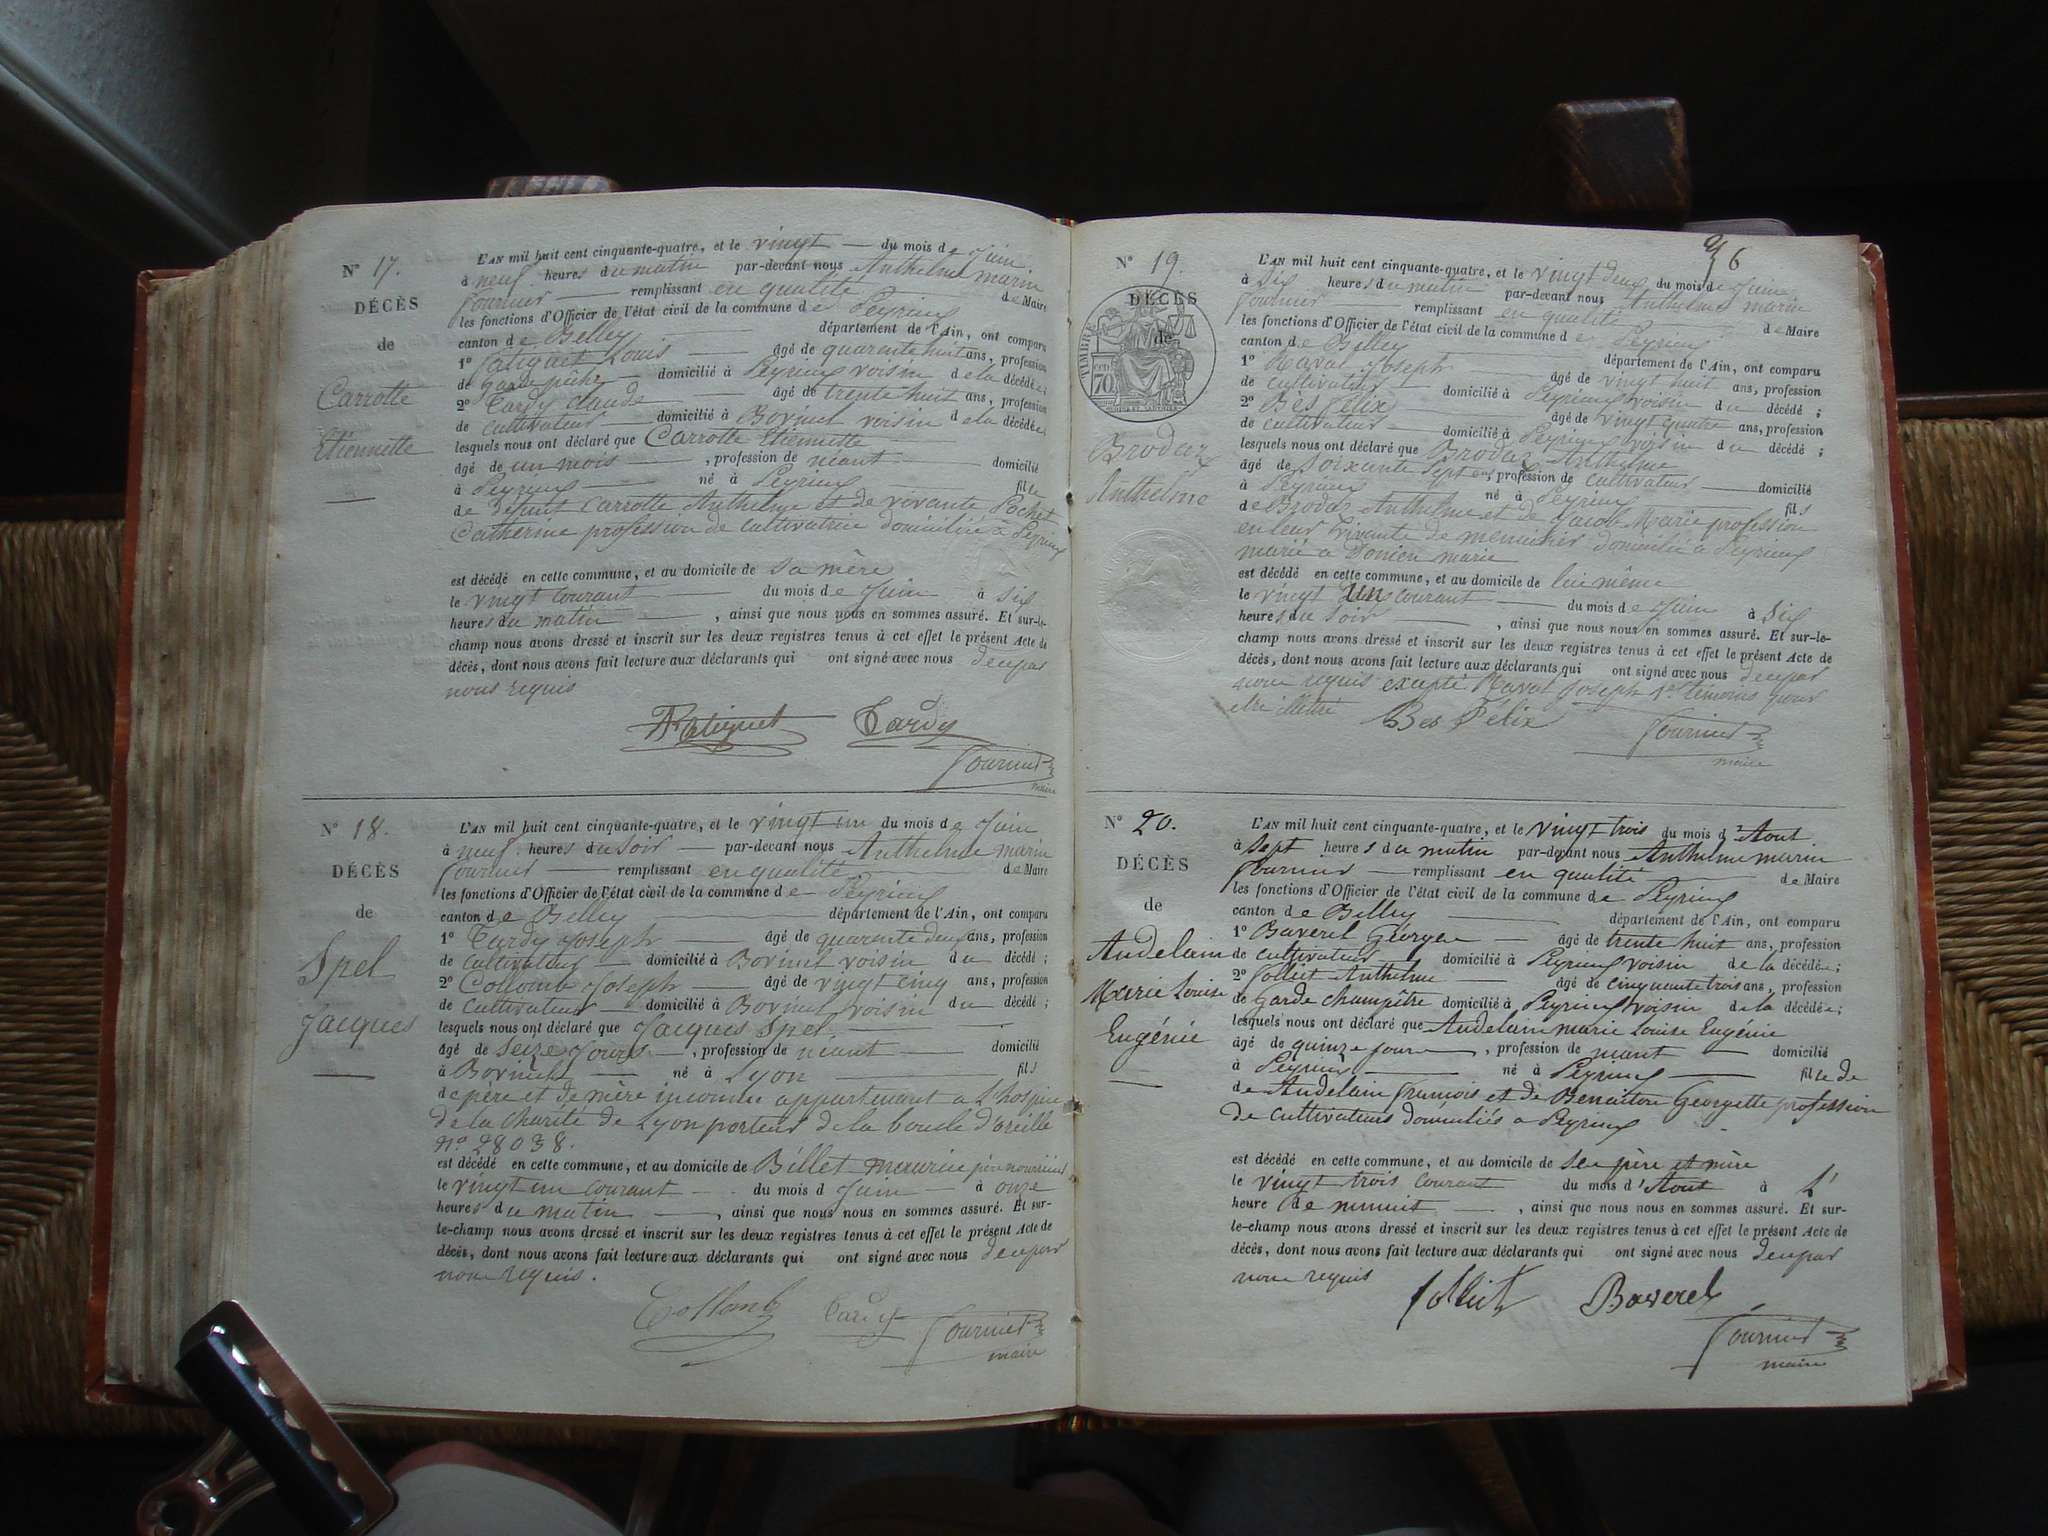 N° 17.
DÉCÈS
de
Carrotte
Etiennette
L'AN mil huit cent cinquante-quatre, et le vingt du mois de Juin
à neuf heures du matin par-devant nous Anthelme marin
Fournier remplissant en qualité de Maire
les fonctions d'Officier de l'état civil de la commune de Peyrieux
canton de Belley département de l'Ain, ont comparu
1° Louis âgé de quarente huit ans, profession
de garde pêche domicilié à Peyrieux voisin de la décédée;
2° Tardy Claude âgé de trente huit ans, profession
de cultivateur domicilié à Bovinel voisin de la décédée;
lesquels nous ont déclaré que Carrotte Etiennette
âgé de un mois, profession de néant domicilié
à Peyrieux né à Peyrieux fille
de défunt Carrotte Anthelme et de vivante Pochet
Catherine profession de cultivatrice domiciliée à Peyrieux
est décédé en cette commune, et au domicile de sa mère
le vingt courant du mois de Juin à six
heures du matin, ainsi que nous nous en sommes assuré. Et sur-le-
champ nous avons dressé et inscrit sur les deux registres tenus à cet effet le présent Acte de
décès, dont nous avons fait lecture aux déclarants qui ont signé avec nous de ce par
nous requis
Tardy
Fournier
maire
N° 18.
DÉCÈS
de
Spel
Jacques
L'AN mil huit cent cinquante-quatre, et le vingt un du mois de Juin
à neuf heures du soir par-devant nous Anthelme marin
Fournier remplissant en qualité de Maire
les fonctions d'Officier de l'état civil de la commune de Peyrieux
canton de Belley département de l'Ain, ont comparu
1° Tardy Joseph âgé de quarente deux ans, profession
de cultivateur domicilié à Bovinel voisin du décédé;
2° Collomb Joseph âgé de vingt cinq ans, profession
de cultivateur domicilié à Bovinel voisin du décédé;
lesquels nous ont déclaré que Jacques Spel
âgé de seize jours, profession de néant domicilié
à Bovinel né à Lyon fils
de père et de mère inconnu appartenant a L'hospice
de la Charité de Lyon porteur de la boucle d'oreille
n° 28038.
est décédé en cette commune, et au domicile de Billet maurice père nourricier
le vingt un courant du mois d Juin à onze
heures du matin, ainsi que nous nous en sommes assuré. Et sur-
le-champ nous avons dressé et inscrit sur les deux registres tenus à cet effet le présent Acte de
décès, dont nous avons fait lecture aux déclarants qui ont signé avec nous de ce par
nous requis.
Collomb Tardy
Fournier
maire
36
N° 19.
DÉCÈS
de
TIMBRE
70
Brodaz
Anthelme
L'AN mil huit cent cinquante-quatre, et le vingt deux du mois de Juin
à six heures du matin par-devant nous Anthelme marin
Fournier remplissant en qualité de Maire
les fonctions d'Officier de l'état civil de la commune de Peyrieux
canton de Belley département de l'Ain, ont comparu
1° Ravat Joseph âgé de vingt huit ans, profession
de cultivateur domicilié à Peyrieux voisin du décédé;
2° Bès Félix âgé de vingt quatre ans, profession
de cultivateur domicilié à Peyrieux voisin du décédé;
lesquels nous ont déclaré que Brodaz Anthelme
âgé de soixante sept ans, profession de cultivateur domicilié
à Peyrieux né à Peyrieux fils
de Brodaz Anthelme et de Jacob Marie profession
en leur vivante de menuisier domicilié à Peyrieux
marié a marie
est décédé en cette commune, et au domicile de lui même
le vingt un courant du mois de Juin à six
heures du soir, ainsi que nous nous en sommes assuré. Et sur-le-
champ nous avons dressé et inscrit sur les deux registres tenus à cet effet le présent Acte de
décès, dont nous avons fait lecture aux déclarants qui ont signé avec nous de ce par
nous requis excepté Ravat Joseph 1er témoins pour
Bes Félix
Fournier
maire
N° 20.
DÉCÈS
de
Audelain
Marie Louise
Eugénie
L'AN mil huit cent cinquante-quatre, et le vingt trois du mois d'Aout
à sept heures du matin par-devant nous Anthelme marin
Fournier remplissant en qualité de Maire
les fonctions d'Officier de l'état civil de la commune de Peyrieux
canton de Belley département de l'Ain, ont comparu
1° Baverel George âgé de trente huit ans, profession
de cultivateur domicilié à Peyrieux voisin de la décédée;
2° Folliet Anthelme âgé de cinquante trois ans, profession
de garde champêtre domicilié à Peyrieux voisin de la décédée;
lesquels nous ont déclaré que Audelain marie Louise Eugénie
âgé de quinze jours, profession de néant domicilié
à Peyrieux né à Peyrieux fille de
de Audelain François et de Benaiton Georgette profession
de cultivateurs domiciliés a Peyrieux
est décédé en cette commune, et au domicile de ses père et mère
le vingt trois courant du mois d'Aout à L'
heure de minuit, ainsi que nous nous en sommes assuré. Et sur-
le-champ nous avons dressé et inscrit sur les deux registres tenus à cet effet le présent Acte de
décès, dont nous avons fait lecture aux déclarants qui ont signé avec nous de ce par
nous requis
Folliet Baverel
Fournier
maire